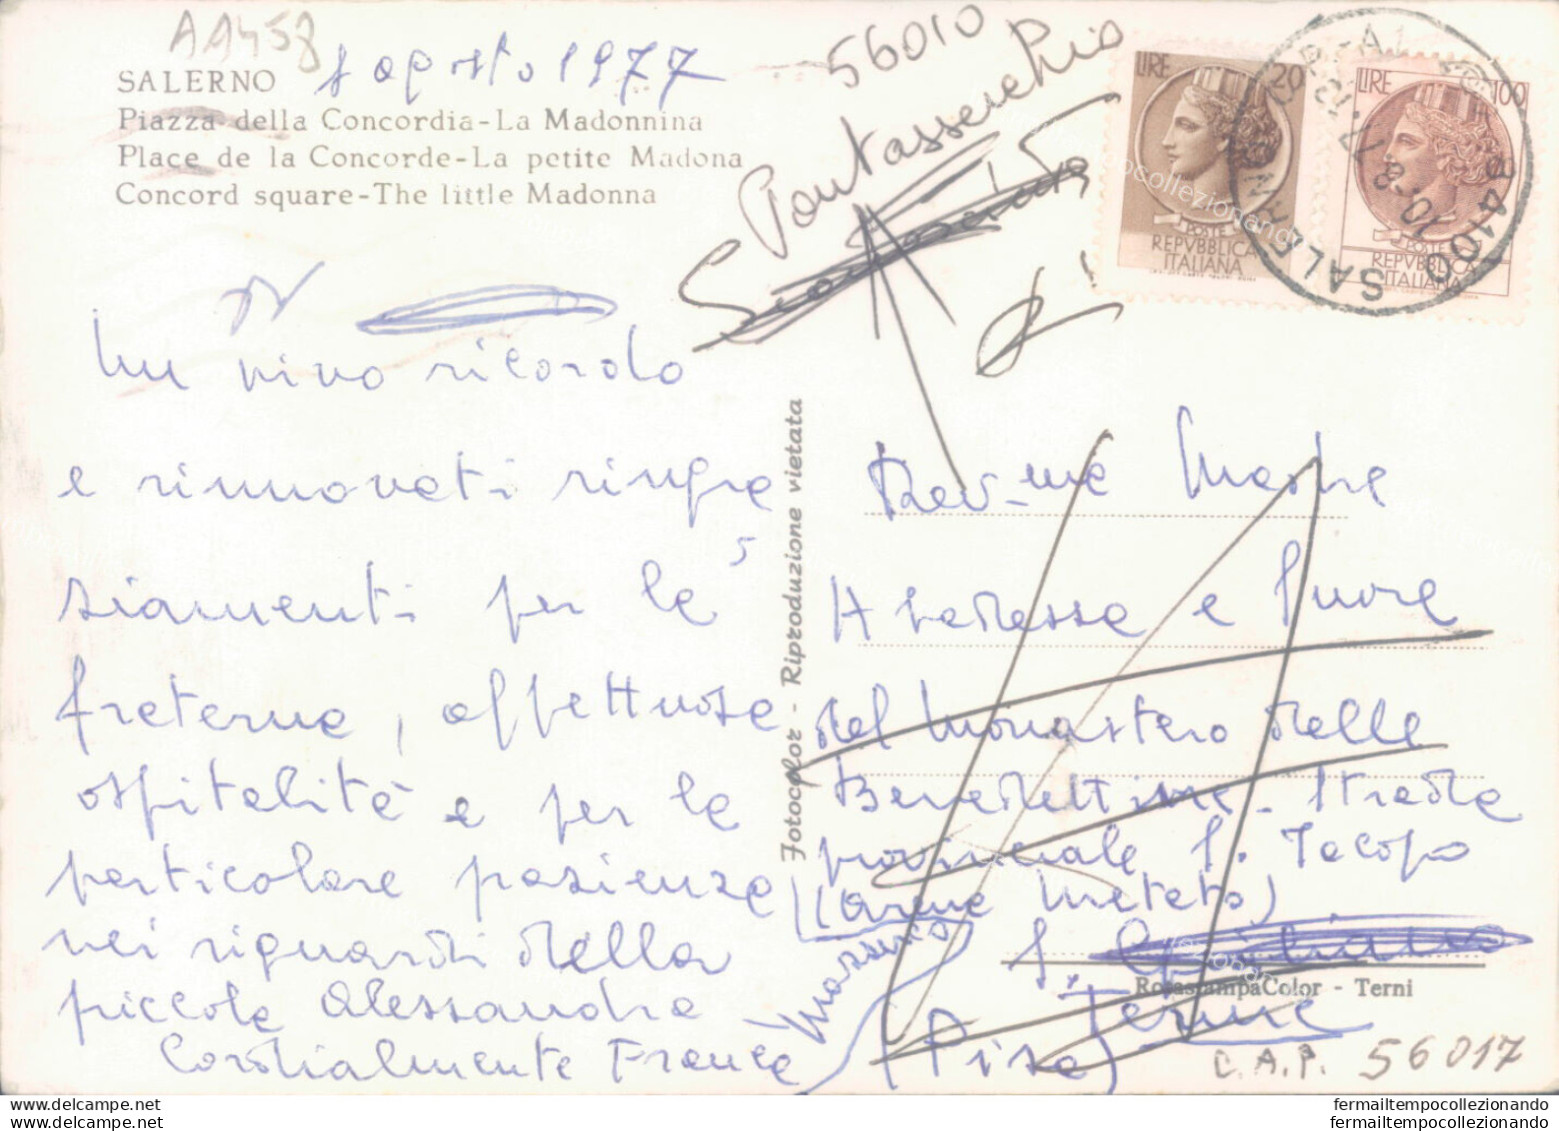 AA458
SALERNO 8 agosto 1977
Piazza della Concordia - La Madonnina
Place de la Concorde - La petite Madona
Concord square - The little Madonna
56010
Pontasserchio
LIRE 20
POSTE
REPVBBLICA
ITALIANA
LIRE 100
POSTE
REPVBBLICA
ITALIANA
84100 SALERNO
10-8
Un vivo ricordo
e rinnovati ringra
ziamenti per le
fraterne, affettuose
ospitalità e per la
particolare pazienza
nei riguardi della
piccola Alessandra
Cordialmente Franca
Fotocolor - Riproduzione vietata
Rev-me Madre
Abadessa e Suore
del Monastero delle
Benedettine - Strada
provinciale S. Jacopo
(Arena Metato)
S. Giuliano
Terme
(Pisa)
RotastampaColor - Terni
C.A.P. 56017
fermailtempocollezionando
fermailtempocollezionando.com
fermailtempocollezionando
fermailtempocollezionando.com